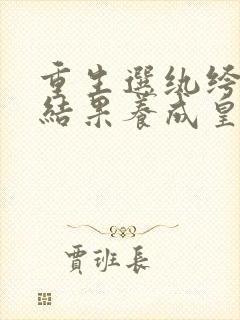 重生選紈絝
結果養成皇
賈班長